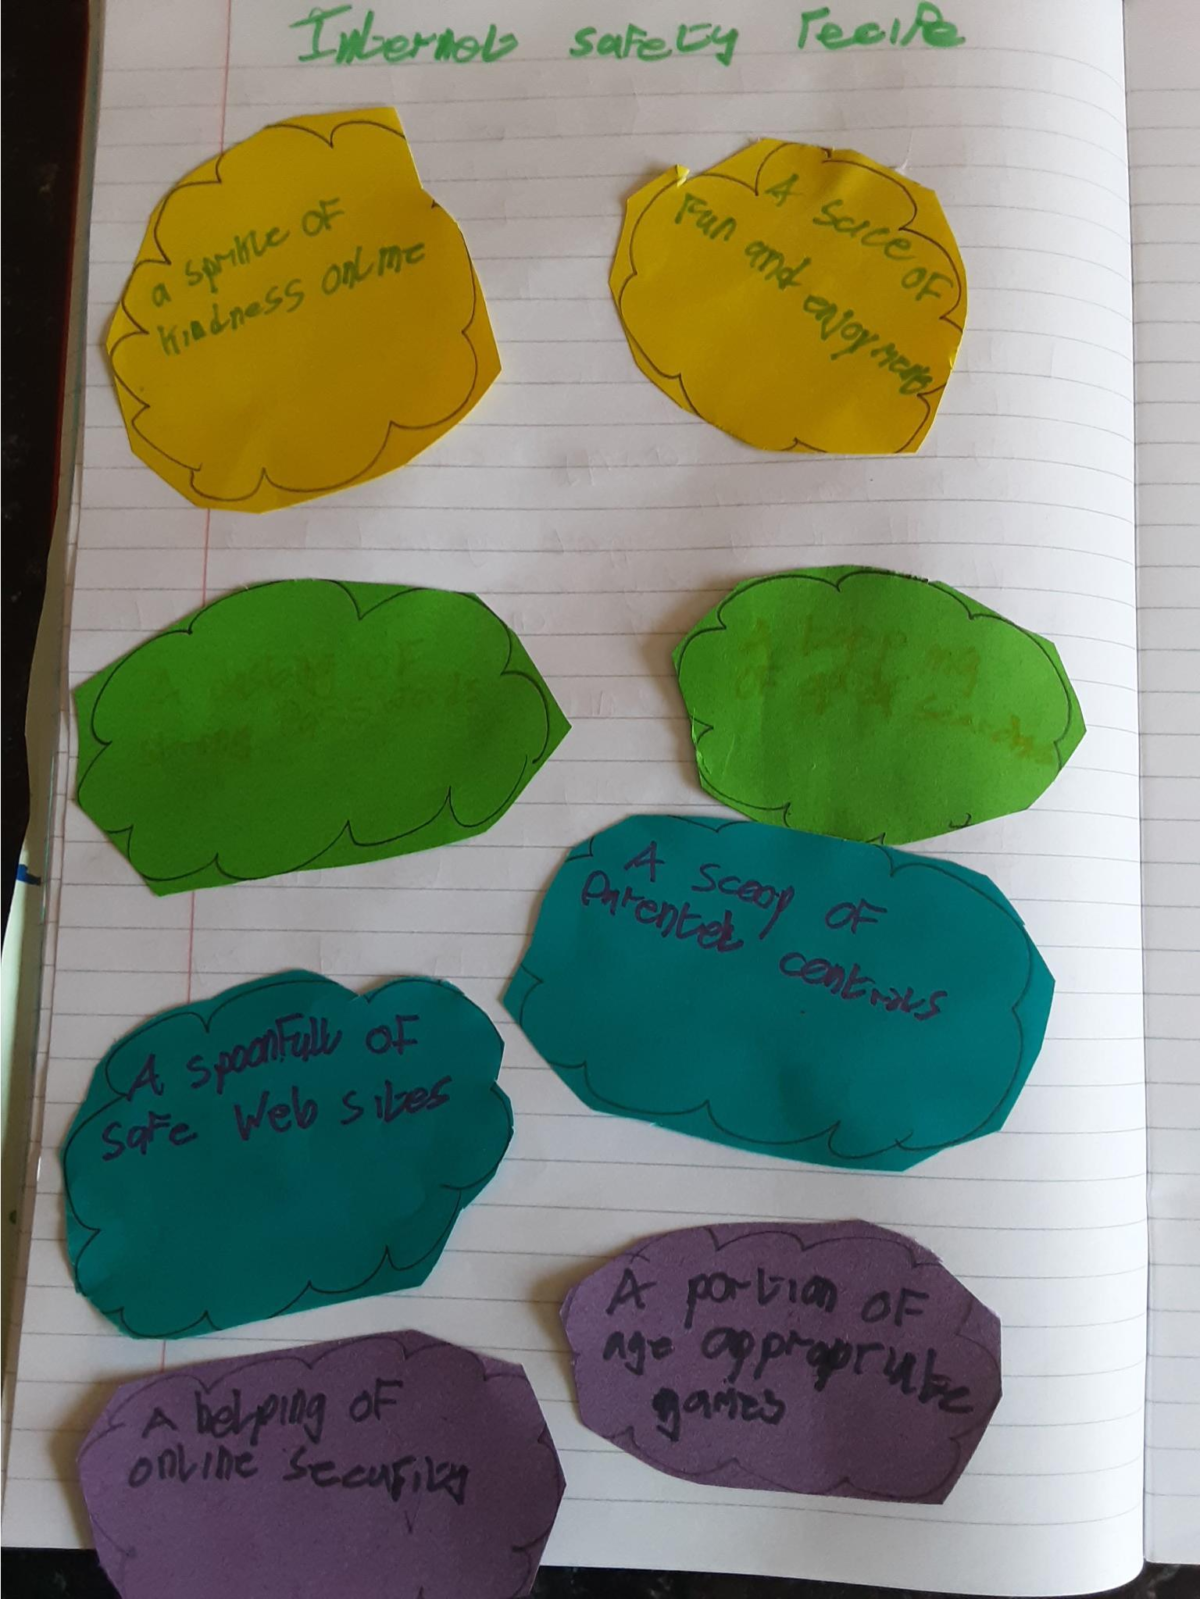 Internet safety recipe
a sprinkle of
kindness online
A scice of
Fun and enjoyment
A of
strong passwords
A topping
of
A scoop of
Parentel controls
A spoonfull of
safe Web sites
A portion of
age appropriate
games
A helping of
online security